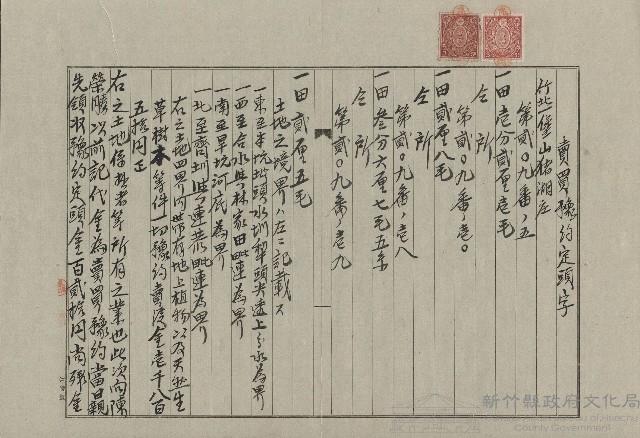 賣買豫約定頭字
竹北堡山豬湖庄
第貳〇九番ノ五
一田壱分貳厘壱毛
仝所
第貳〇九番ノ壱〇
一田貳厘八毛
仝所
第貳〇九番ノ壱八
一田叁分六厘七毛五糸
仝所
第貳〇九番ノ壱九
一田貳厘五毛
土地之境界ハ左ニ記載ス
一東至坑墘頭水圳犁頭尖透上分水為界
一西至合水與林家田毗連為界
一南至旱坑河底為界
一北至齊圳與連恭毗連為界
右之土地四界內世帶存地上植物以及天然生
草樹木等件一切豫約賣渡金壱千八百
五拾円正
右之土地係抵者等所有之業也此次向陳
榮勝以前記代金為賣買豫約當日親
先領收豫約定頭金百貳拾円尚殘金
新竹縣政府文化局
County Government